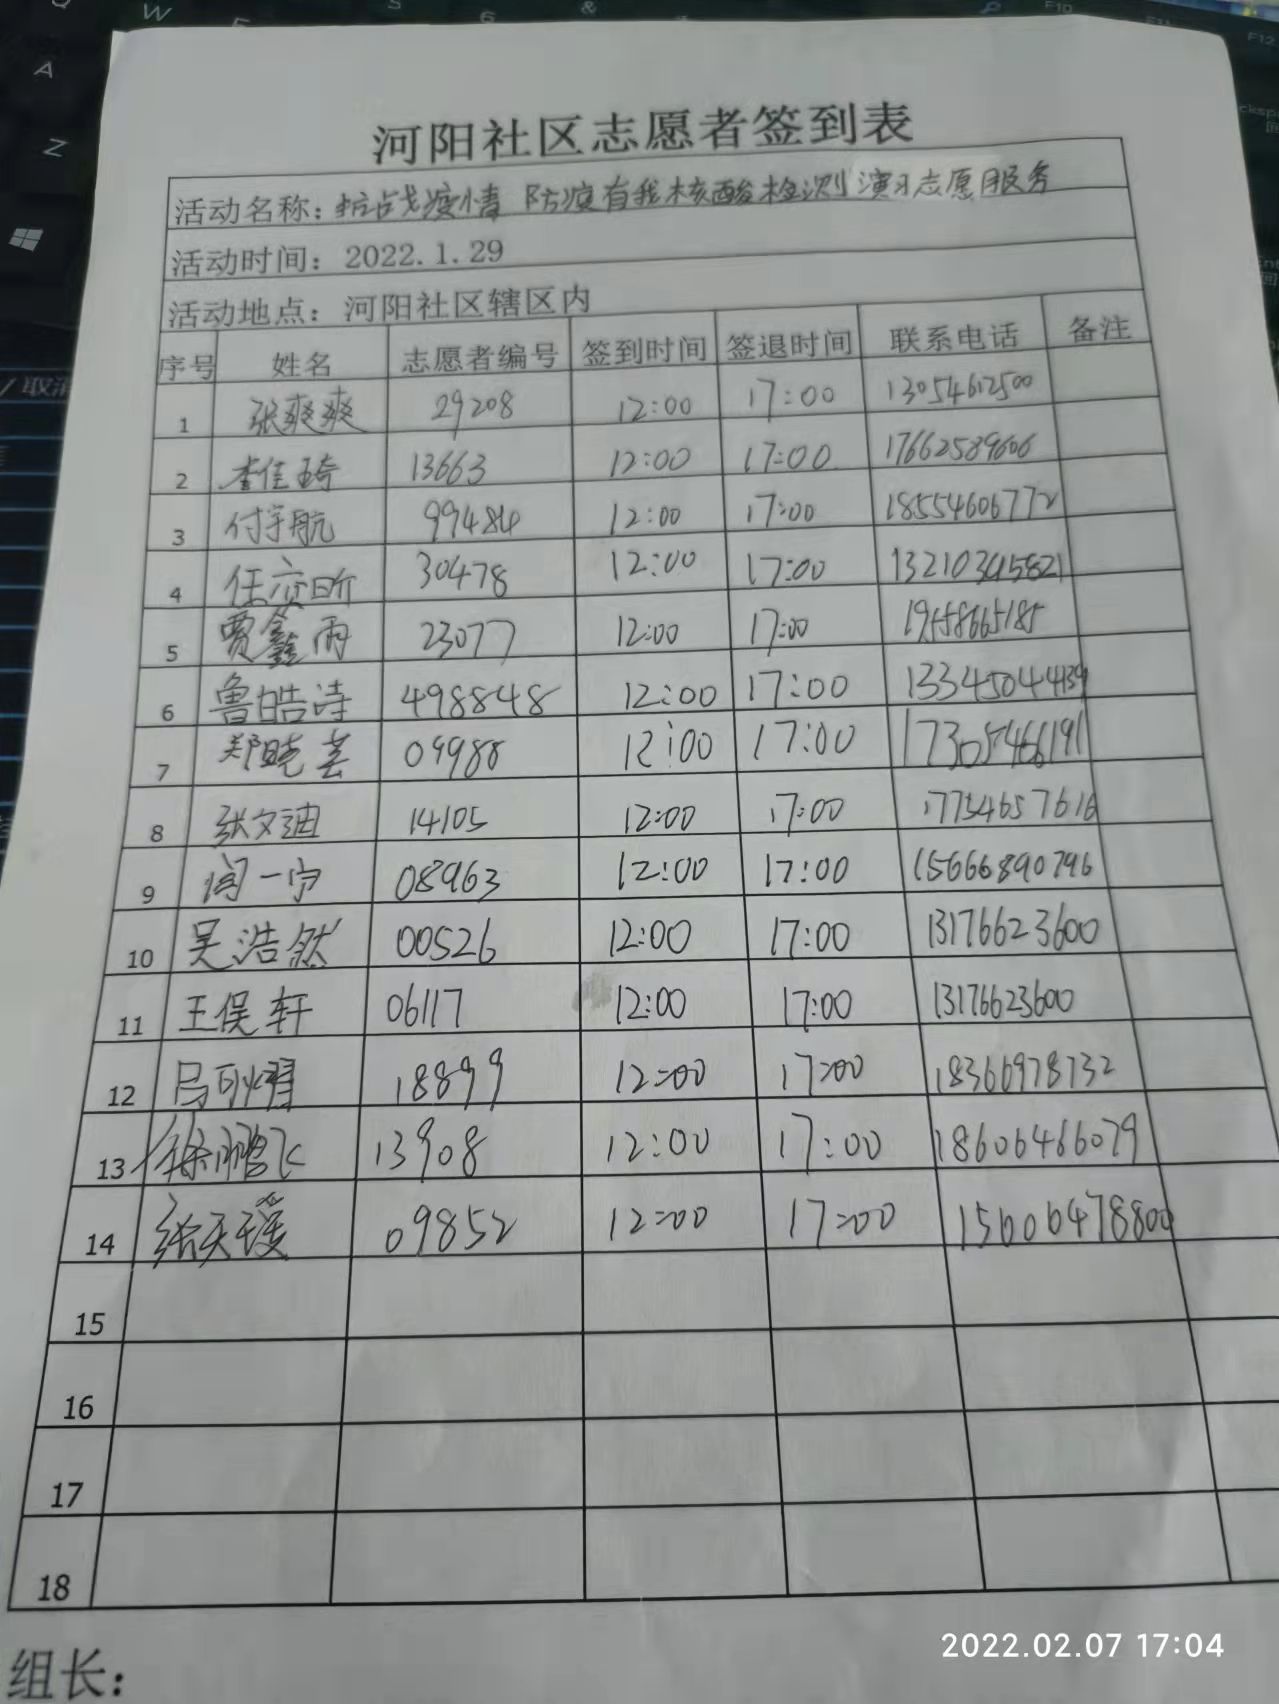 河阳社区志愿者签到表
活动名称：抗战疫情 防疫有我核酸检测演习志愿服务
活动时间：2022.1.29
活动地点：河阳社区辖区内
序号 姓名 志愿者编号 签到时间 签退时间 联系电话 备注
1 张爽爽 29208 12:00 17:00 13054612500
2 李佳琦 13663 12:00 17:00 17662589606
3 付宇航 99484 12:00 17:00 18554606772
4 30478 12:00 17:00
5 贾鑫雨 23077 12:00 17:00
6 鲁皓诗 498848 12:00 17:00 13345044139
7 郑晓芸 09988 12:00 17:00 17305466191
8 张文迪 14105 12:00 17:00 17754657616
9 闫一宁 08963 12:00 17:00 15666890796
10 吴浩然 00526 12:00 17:00 13176623600
11 王俣轩 06117 12:00 17:00 13176623600
12 18899 12:00 17:00 18366978732
13 徐鹏飞 13908 12:00 17:00 18606466079
14 张天瑷 09852 12:00 17:00 15606478800
15
16
17
18
组长：
2022.02.07 17:04